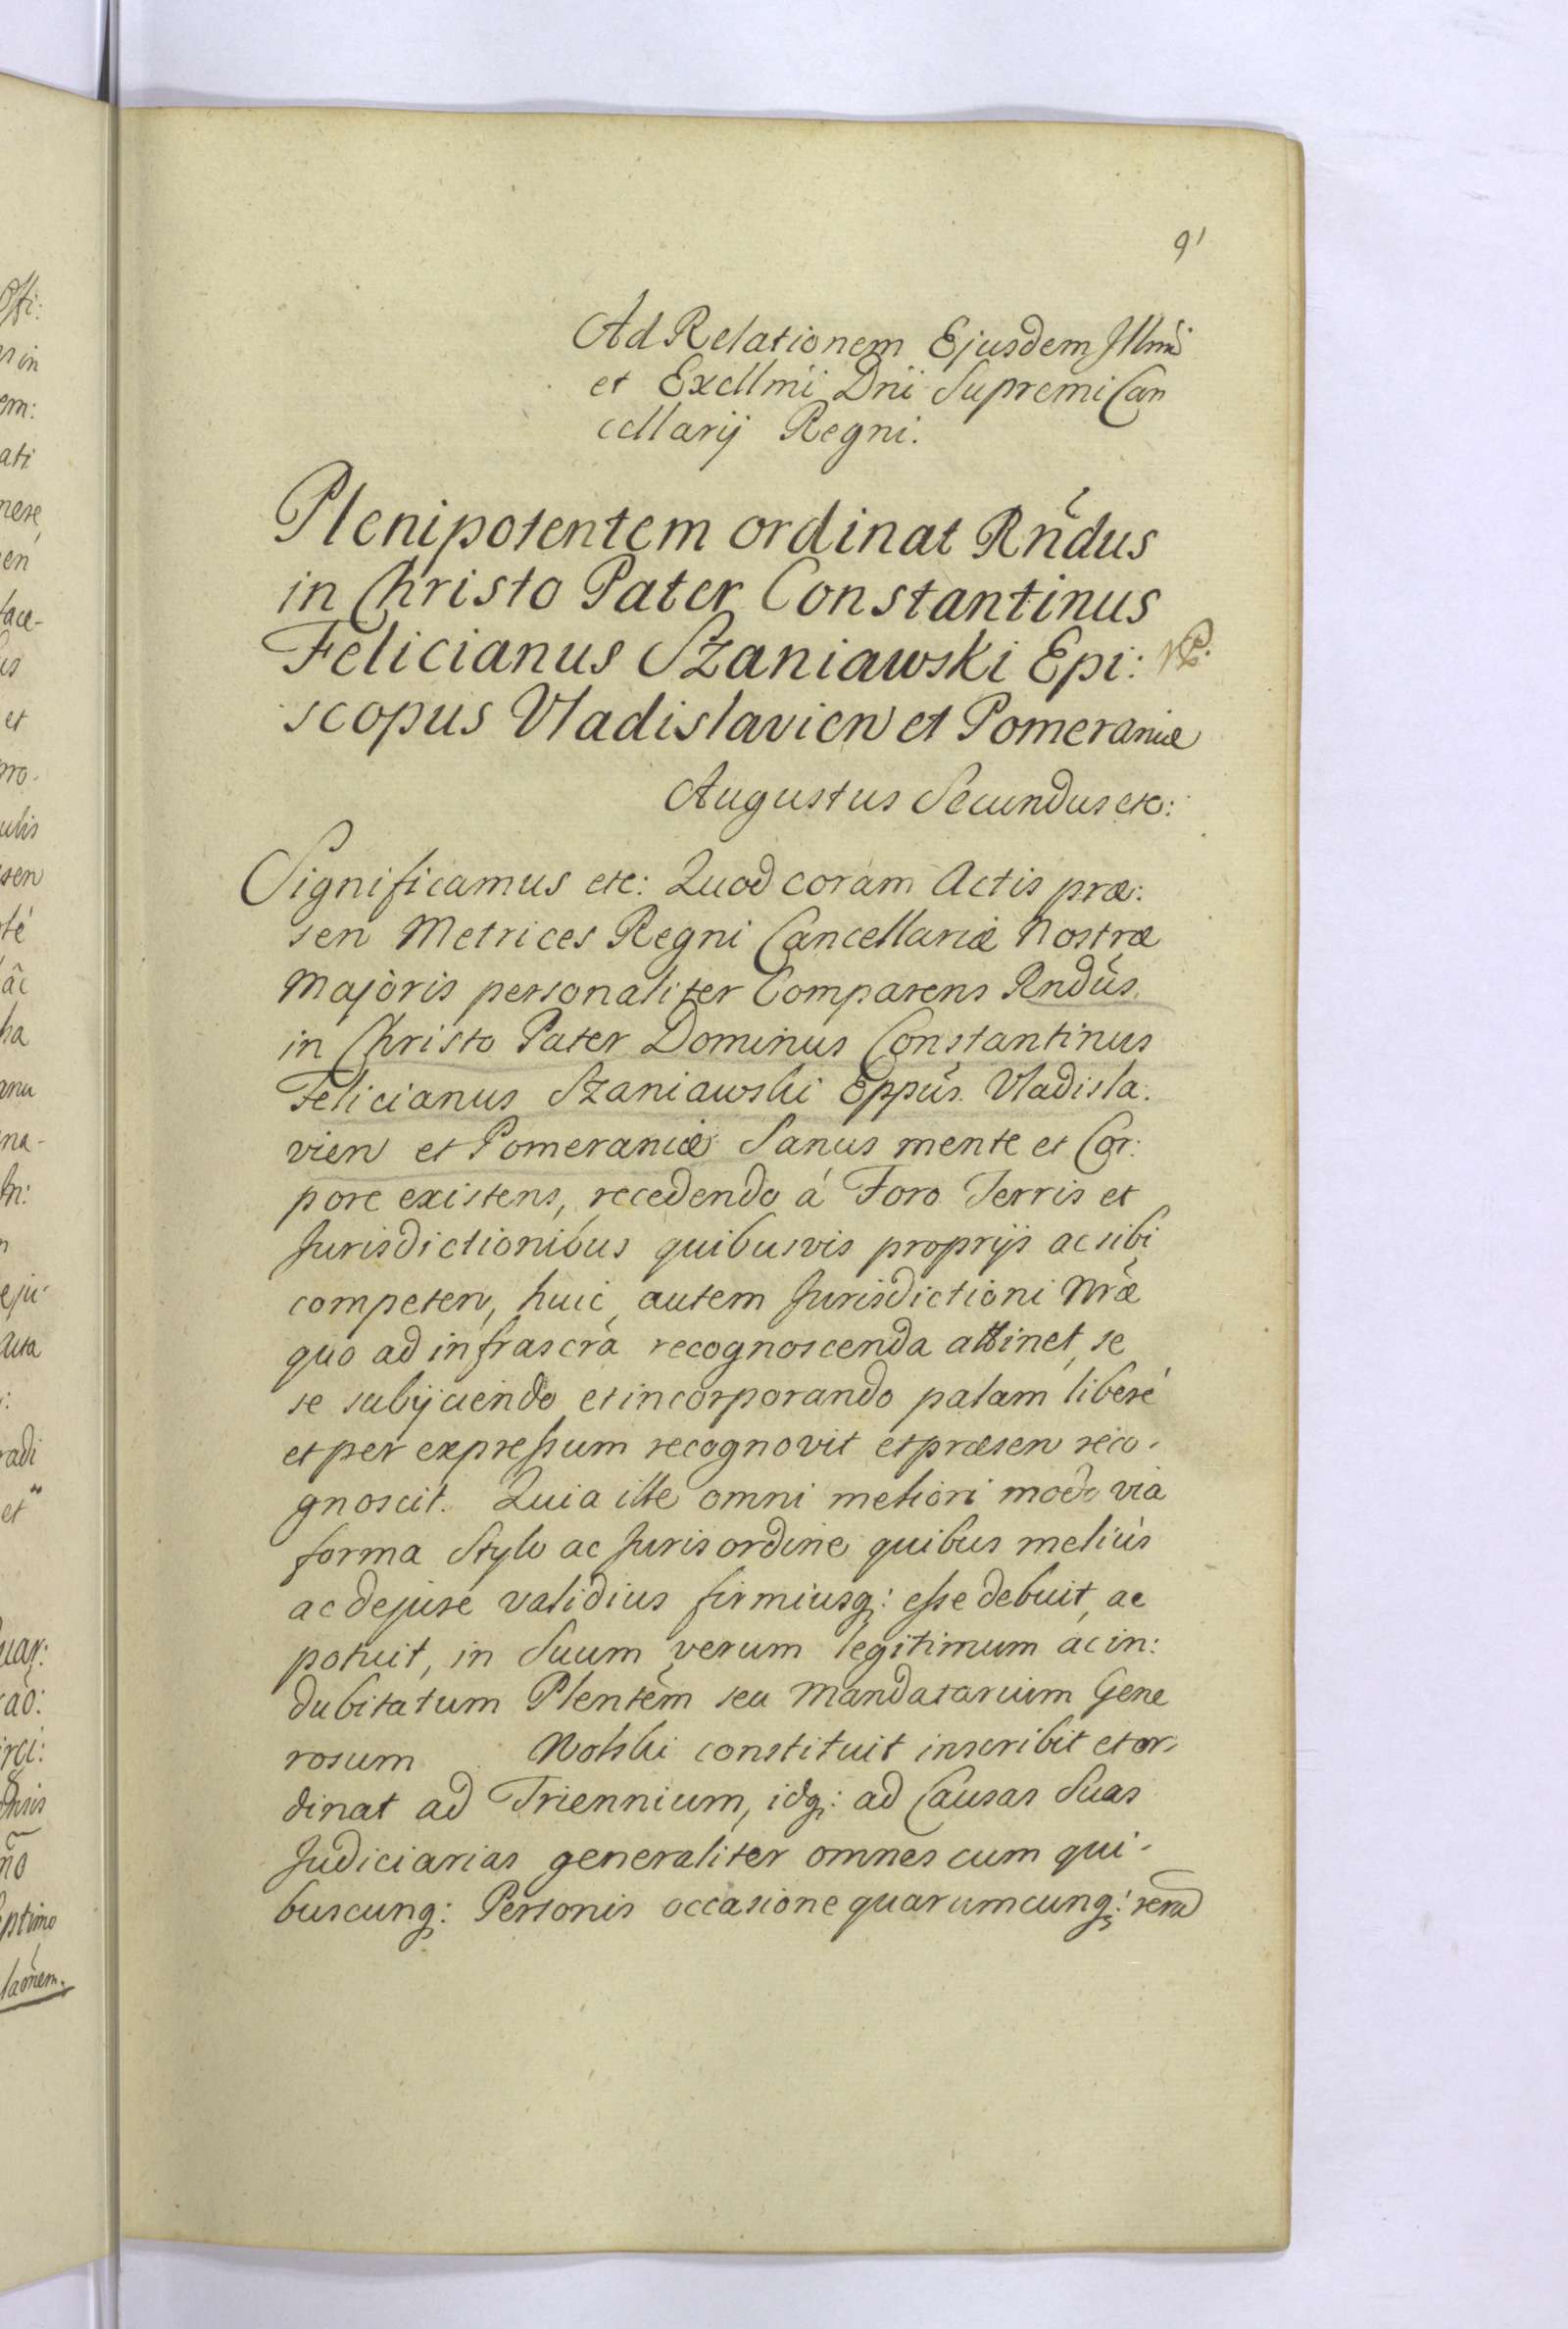 91
Ad Relationem Ejusdem Illmi
et Excllmi Dni Supremi Can
cellarij Regni.
Plenipotentem ordinat Rndus
in Christo Pater Constantinus
Felicianus Szaniawski Epi:
scopus Vladislavien et Pomeraniæ
Augustus Secundus etc:
Significamus etc: Quod coram Actis præ:
sen Metrices Regni Cancellariæ Nostræ
Majoris personaliter Comparens Rndus
in Christo Pater Dominus Constantinus
Felicianus Szaniawski Eppus Vladisla:
vien et Pomeraniæ Sanus mente et Cor:
pore existens, recedendo á Foro Terris et
Jurisdictionibus quibusvis proprijs ac sibi
competen, huic autem Jurisdictioni Nræ
quo ad infrascra recognoscenda attinet, se
se subijciendo et incorporando palam liberé
et per expressum recognovit et præsen reco-
gnoscit. Quia ille omni meliori modo via
forma Stylo ac Juris ordine quibus meliús
ac dejuré validius firmiusq: esse debuit, ac
potuit, in Suum verum legitimum ac in:
dubitatum Plentem seu Mandatarium Gene
rosum Wolski constituit inscribit et or-
dinat ad Triennium, idq: ad Causas Suas
Judiciarias generaliter omnes cum qui-
buscunq: Personis occasione quarumcunq: rerū